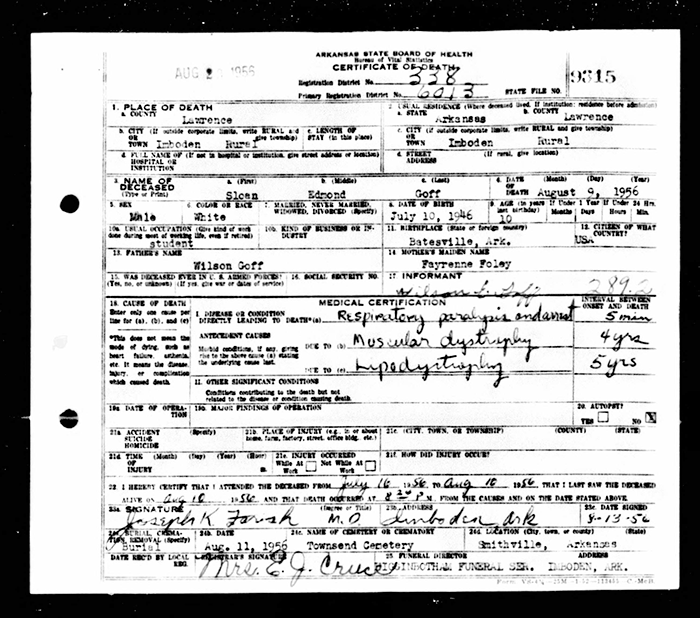 AUG 20 1956
ARKANSAS STATE BOARD OF HEALTH
Bureau of Vital Statistics
CERTIFICATE OF DEATH
Registration District No. 338
Primary Registration District No. 6013
STATE FILE NO. 9315
1. PLACE OF DEATH
a. COUNTY Lawrence
2. USUAL RESIDENCE (Where deceased lived. If institution: residence before admission)
a. STATE Arkansas b. COUNTY Lawrence
b. CITY (If outside corporate limits, write RURAL and give township) OR TOWN Imboden Rural
c. LENGTH OF STAY (in this place)
c. CITY (If outside corporate limits, write RURAL and give township) OR TOWN Imboden Rural
d. FULL NAME OF (If not in hospital or institution, give street address or location) HOSPITAL OR INSTITUTION
d. STREET ADDRESS (If rural, give location)
3. NAME OF DECEASED (Type or Print)
a. (First) Sloan b. (Middle) Edmond c. (Last) Goff
4. DATE OF DEATH (Month) (Day) (Year) August 9, 1956
5. SEX Male
6. COLOR OR RACE White
7. MARRIED, NEVER MARRIED, WIDOWED, DIVORCED (Specify)
8. DATE OF BIRTH July 10, 1946
9. AGE (In years last birthday) 10 If Under 1 Year Months Days If Under 24 Hrs. Hours Min.
10a. USUAL OCCUPATION (Give kind of work done during most of working life, even if retired) student
10b. KIND OF BUSINESS OR INDUSTRY
11. BIRTHPLACE (State or foreign country) Batesville, Ark.
12. CITIZEN OF WHAT COUNTRY? USA
13. FATHER'S NAME Wilson Goff
14. MOTHER'S MAIDEN NAME Fayrenne Foley
15. WAS DECEASED EVER IN U. S. ARMED FORCES? (Yes, no, or unknown) (If yes, give war or dates of service)
16. SOCIAL SECURITY NO.
17. INFORMANT Wilson Goff
289.2
18. CAUSE OF DEATH
Enter only one cause per line for (a), (b), and (c)
MEDICAL CERTIFICATION
INTERVAL BETWEEN ONSET AND DEATH
I. DISEASE OR CONDITION DIRECTLY LEADING TO DEATH*(a) Respiratory paralysis and arrest 5 min
*This does not mean the mode of dying, such as heart failure, asthenia, etc. It means the disease, injury, or complication which caused death.
ANTECEDENT CAUSES
Morbid conditions, if any, giving rise to the above cause (a) stating the underlying cause last.
DUE TO (b) Muscular dystrophy 4 yrs
DUE TO (c) Lipodystrophy 5 yrs
II. OTHER SIGNIFICANT CONDITIONS
Conditions contributing to the death but not related to the disease or condition causing death.
19a. DATE OF OPERATION
19b. MAJOR FINDINGS OF OPERATION
20. AUTOPSY? YES NO X
21a. ACCIDENT SUICIDE HOMICIDE (Specify)
21b. PLACE OF INJURY (e.g., in or about home, farm, factory, street, office bldg., etc.)
21c. (CITY, TOWN, OR TOWNSHIP) (COUNTY) (STATE)
21d. TIME OF INJURY (Month) (Day) (Year) (Hour) m.
21e. INJURY OCCURRED While At Work Not While At Work
21f. HOW DID INJURY OCCUR?
22. I HEREBY CERTIFY THAT I ATTENDED THE DECEASED FROM July 16 1956 TO Aug 10 1956 THAT I LAST SAW THE DECEASED
ALIVE ON Aug 10 1956 AND THAT DEATH OCCURRED AT 8 P.M. FROM THE CAUSES AND ON THE DATE STATED ABOVE.
23a. SIGNATURE (Degree or title) Joseph K. M.D.
23b. ADDRESS Imboden Ark
23c. DATE SIGNED 8-13-56
24a. BURIAL, CREMATION, REMOVAL (Specify) Burial
24b. DATE Aug. 11, 1956
24c. NAME OF CEMETERY OR CREMATORY Townsend Cemetery
24d. LOCATION (City, town, or county) (State) Smithville, Arkansas
DATE REC'D BY LOCAL REG.
REGISTRAR'S SIGNATURE Mrs. E. J. Cruce
25. FUNERAL DIRECTOR HIGGINBOTHAM FUNERAL SER.
ADDRESS IMBODEN, ARK.